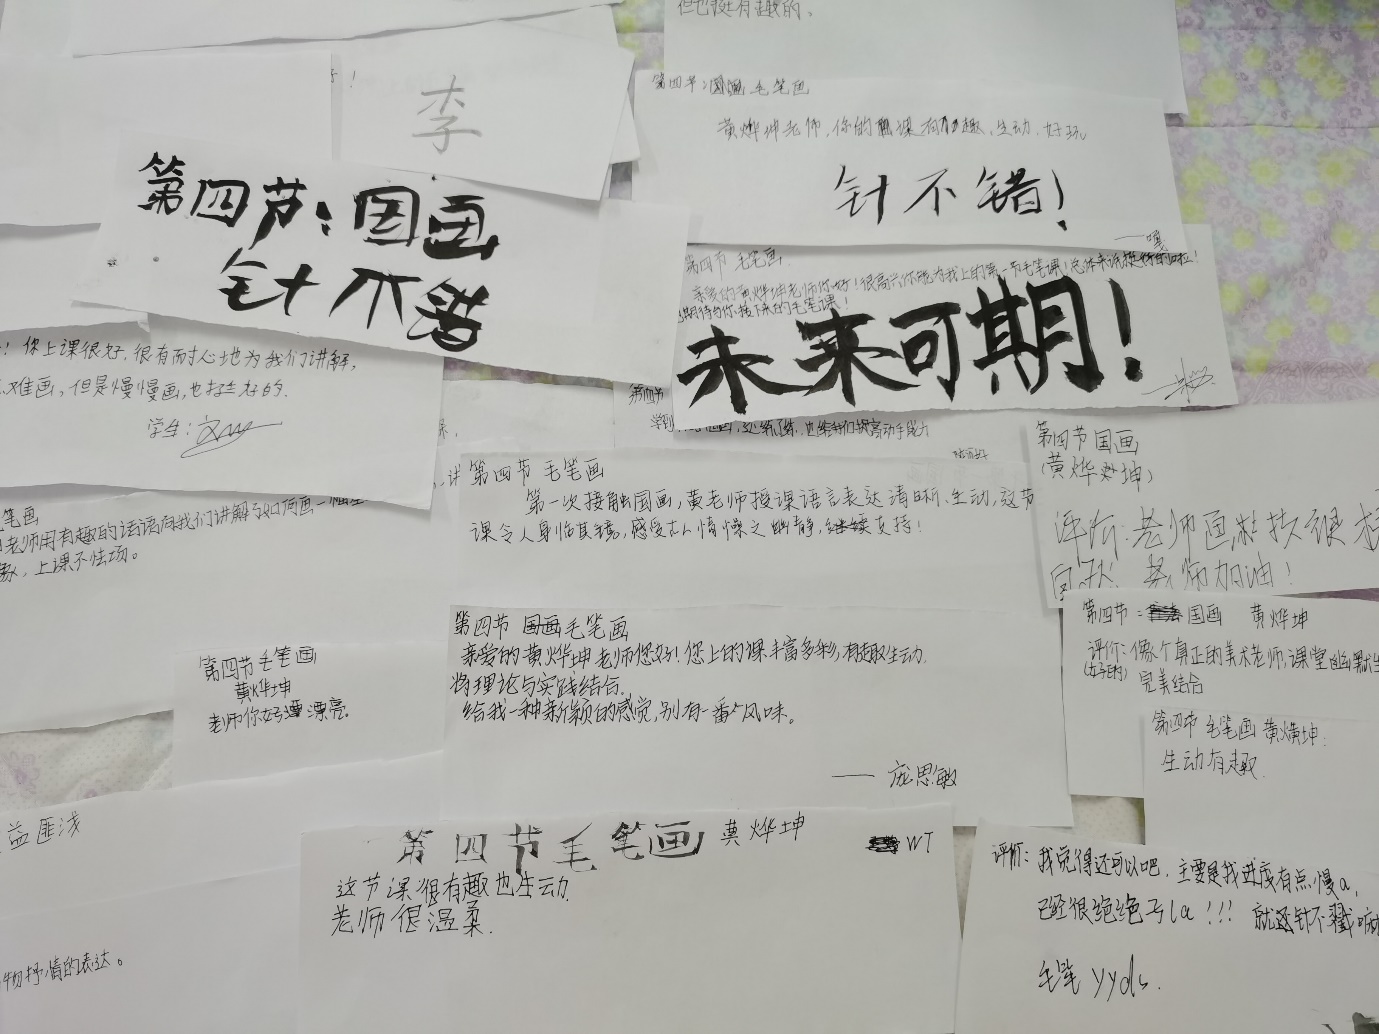 但也挺有趣的、
第四节：国画 毛笔画
黄烨坤老师，你的课有趣、生动、好玩
针不错！
——嘎
！
李
第四节：国画
针不错
第四节 毛笔画
亲爱的黄烨坤老师你好！很高兴你能为我上的第一节毛笔课！总体来说挺好的啦！
期待与你接下来的毛笔课！
未来可期！
！你上课很好，很有耐心地为我们讲解，
难画，但是慢慢画，也挺好的.
学生：
第四节
也给我们提高动手能力
第四节国画
(黄烨坤)
评价：老师画画技很
老师加油！
第四节 毛笔画
第一次接触国画，黄老师授课语言表达清晰、生动，这节
课令人身临其境，感受古人情操之幽静，继续支持！
笔画
老师用有趣的话语向我们讲解了如何画一幅
，上课不怯场。
第四节 毛笔画
亲爱的黄烨坤老师您好！您上的课丰富多彩，有趣生动.
将理论与实践结合.
给我一种新颖的感觉，别有一番风味。
——庞思敏
第四节毛笔画
黄烨坤
老师你好漂 漂亮.
第四节：国画 黄烨坤
评价：像个真正的美术老师，课堂幽默生
(好的) 完美结合
第四节 毛笔画 黄熿坤：
生动有趣.
益匪浅
第四节毛笔画 黄烨坤 WT
这节课很有趣也生动.
老师很温柔.
评价：我觉得还可以吧，主要是我进度有点慢a，
已经很绝绝子la！！！就还针不戳嘛
毛笔 yyds.
物抒情的表达。